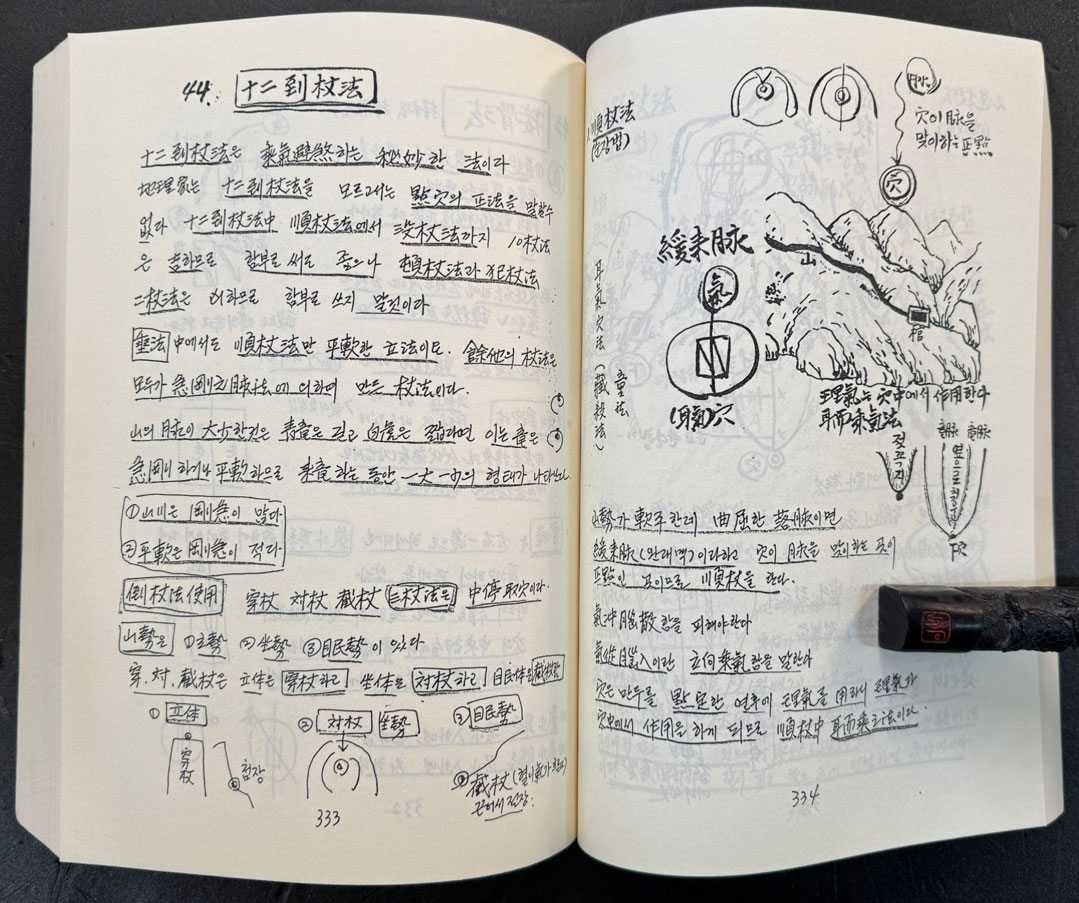 44. 十二到杖法
十二到杖法은 乘氣避煞하는 秘妙한 法이다
地理家는 十二到杖法을 모르고서는 點穴의 正法을 말할수
없다 十二到杖法中 順杖法에서 沒杖法까지 10杖法
은 吉하므로 함부로 써도 좋으나 頓杖法과 犯杖法
二杖法은 凶하므로 함부로 쓰지 말것이다
乘法中에서도 順杖法만 平軟한 立法이고. 餘他의 杖法은
모두가 急剛之脈法에 의하여 만든 杖法이다.
山의 脈이 大小한것은 靑龍은 길고 白虎은 짧다라면 이는 龍은
急剛하거나 平軟하므로 來龍하는 동안 一大一小의 형태가 나타난다
①山川은 剛急이 많다
②平軟은 剛急이 적다
倒杖法使用 穿杖 対杖 截杖 三杖法은 中停取穴이다.
山勢은 ①立勢 ②坐勢 ③眠勢이 있다
穿. 対. 截杖은 立体은 穿杖하고 坐体은 対杖하고 眠体은 截杖
① 立体
穿杖
첨장
② 対杖 坐勢
③ 眠勢
截杖
끈어서 전장:
333
順杖法
穴이 脈을
맞이하는 正點
穴
緩来脉
氣
(耳氣)穴
耳氣穴法 (藏殺法)
山
棺
理氣는 穴中에서 作用한다
耳而乘氣法
젖꼭지
山勢가 軟平한데 曲屈한 落脈이면
緩来脉(만래맥)이라하고 穴이 脈을 맞이하는 곳이
正點인 곳이므로 順杖을 한다.
氣冲腦散 함을 피해야한다
氣從耳入이란 立向乘氣함을 말한다
穴은 만두를 點定한 연후에 理氣를 用하니 理氣가
穴中에서 作用을 하게 되므로 順杖中 耳而乘之法이다.
334